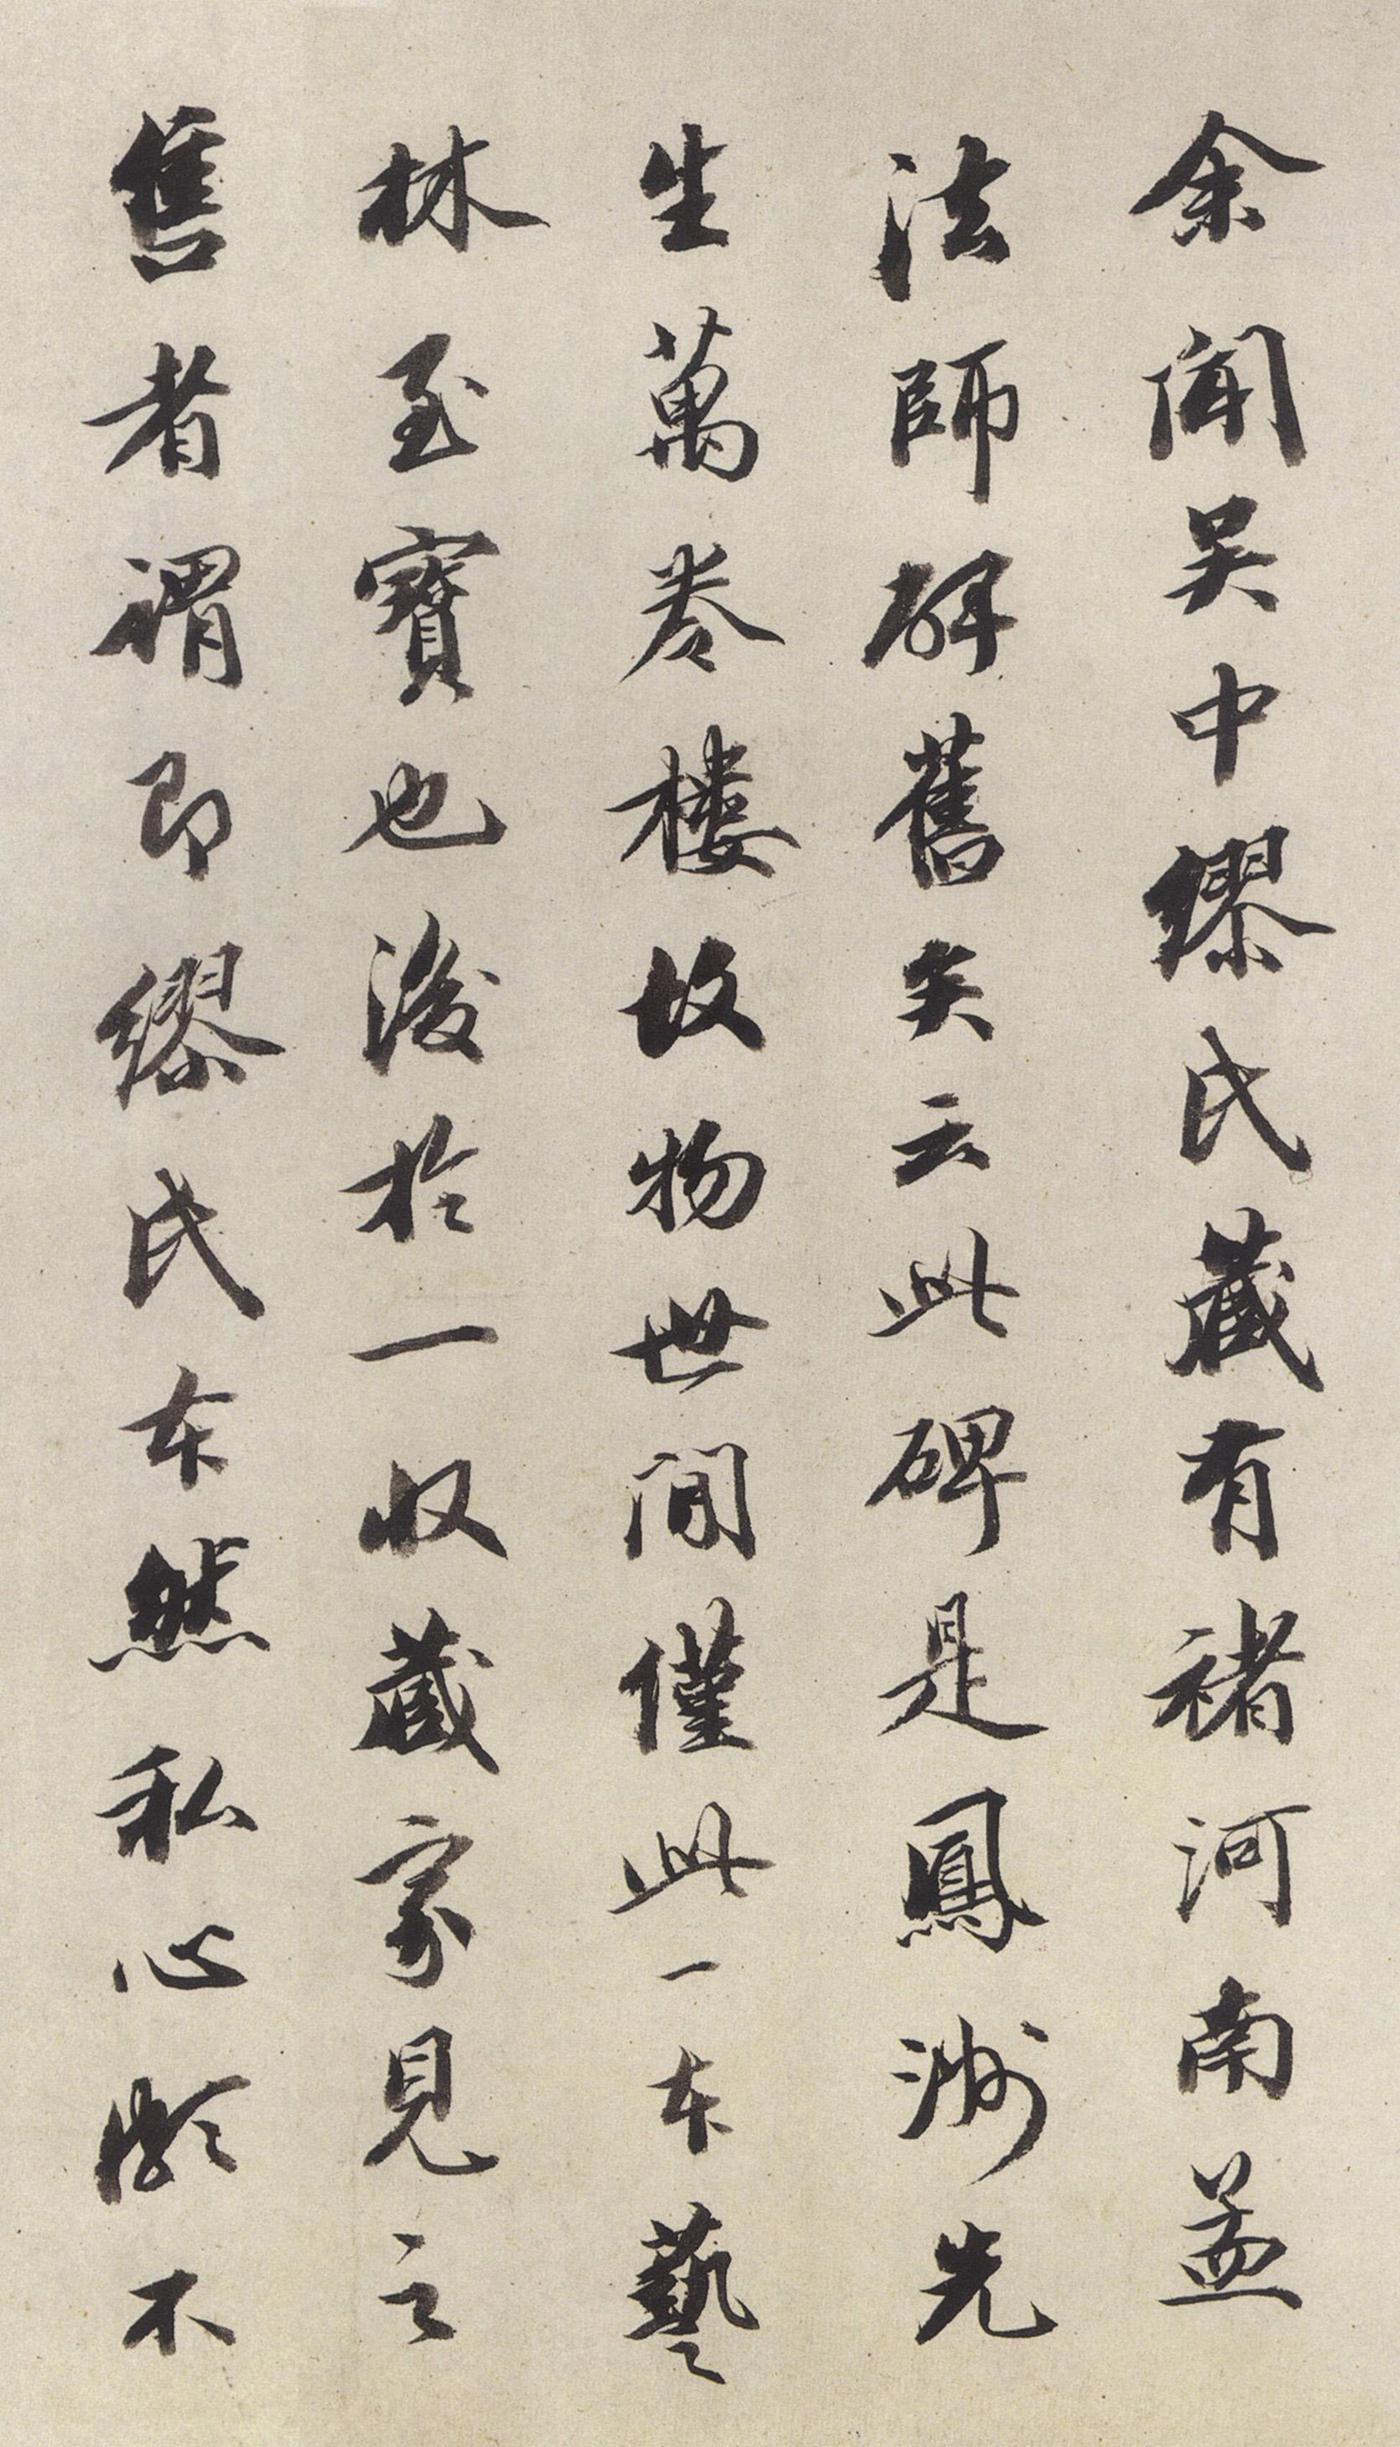 余聞吴中繆氏藏有褚河南孟
法師碑舊矣云此碑是鳳洲先
生萬卷樓故物世間僅此一本藝
林至寶也後於一收藏家見之
售者謂即繆氏本然私心疑不